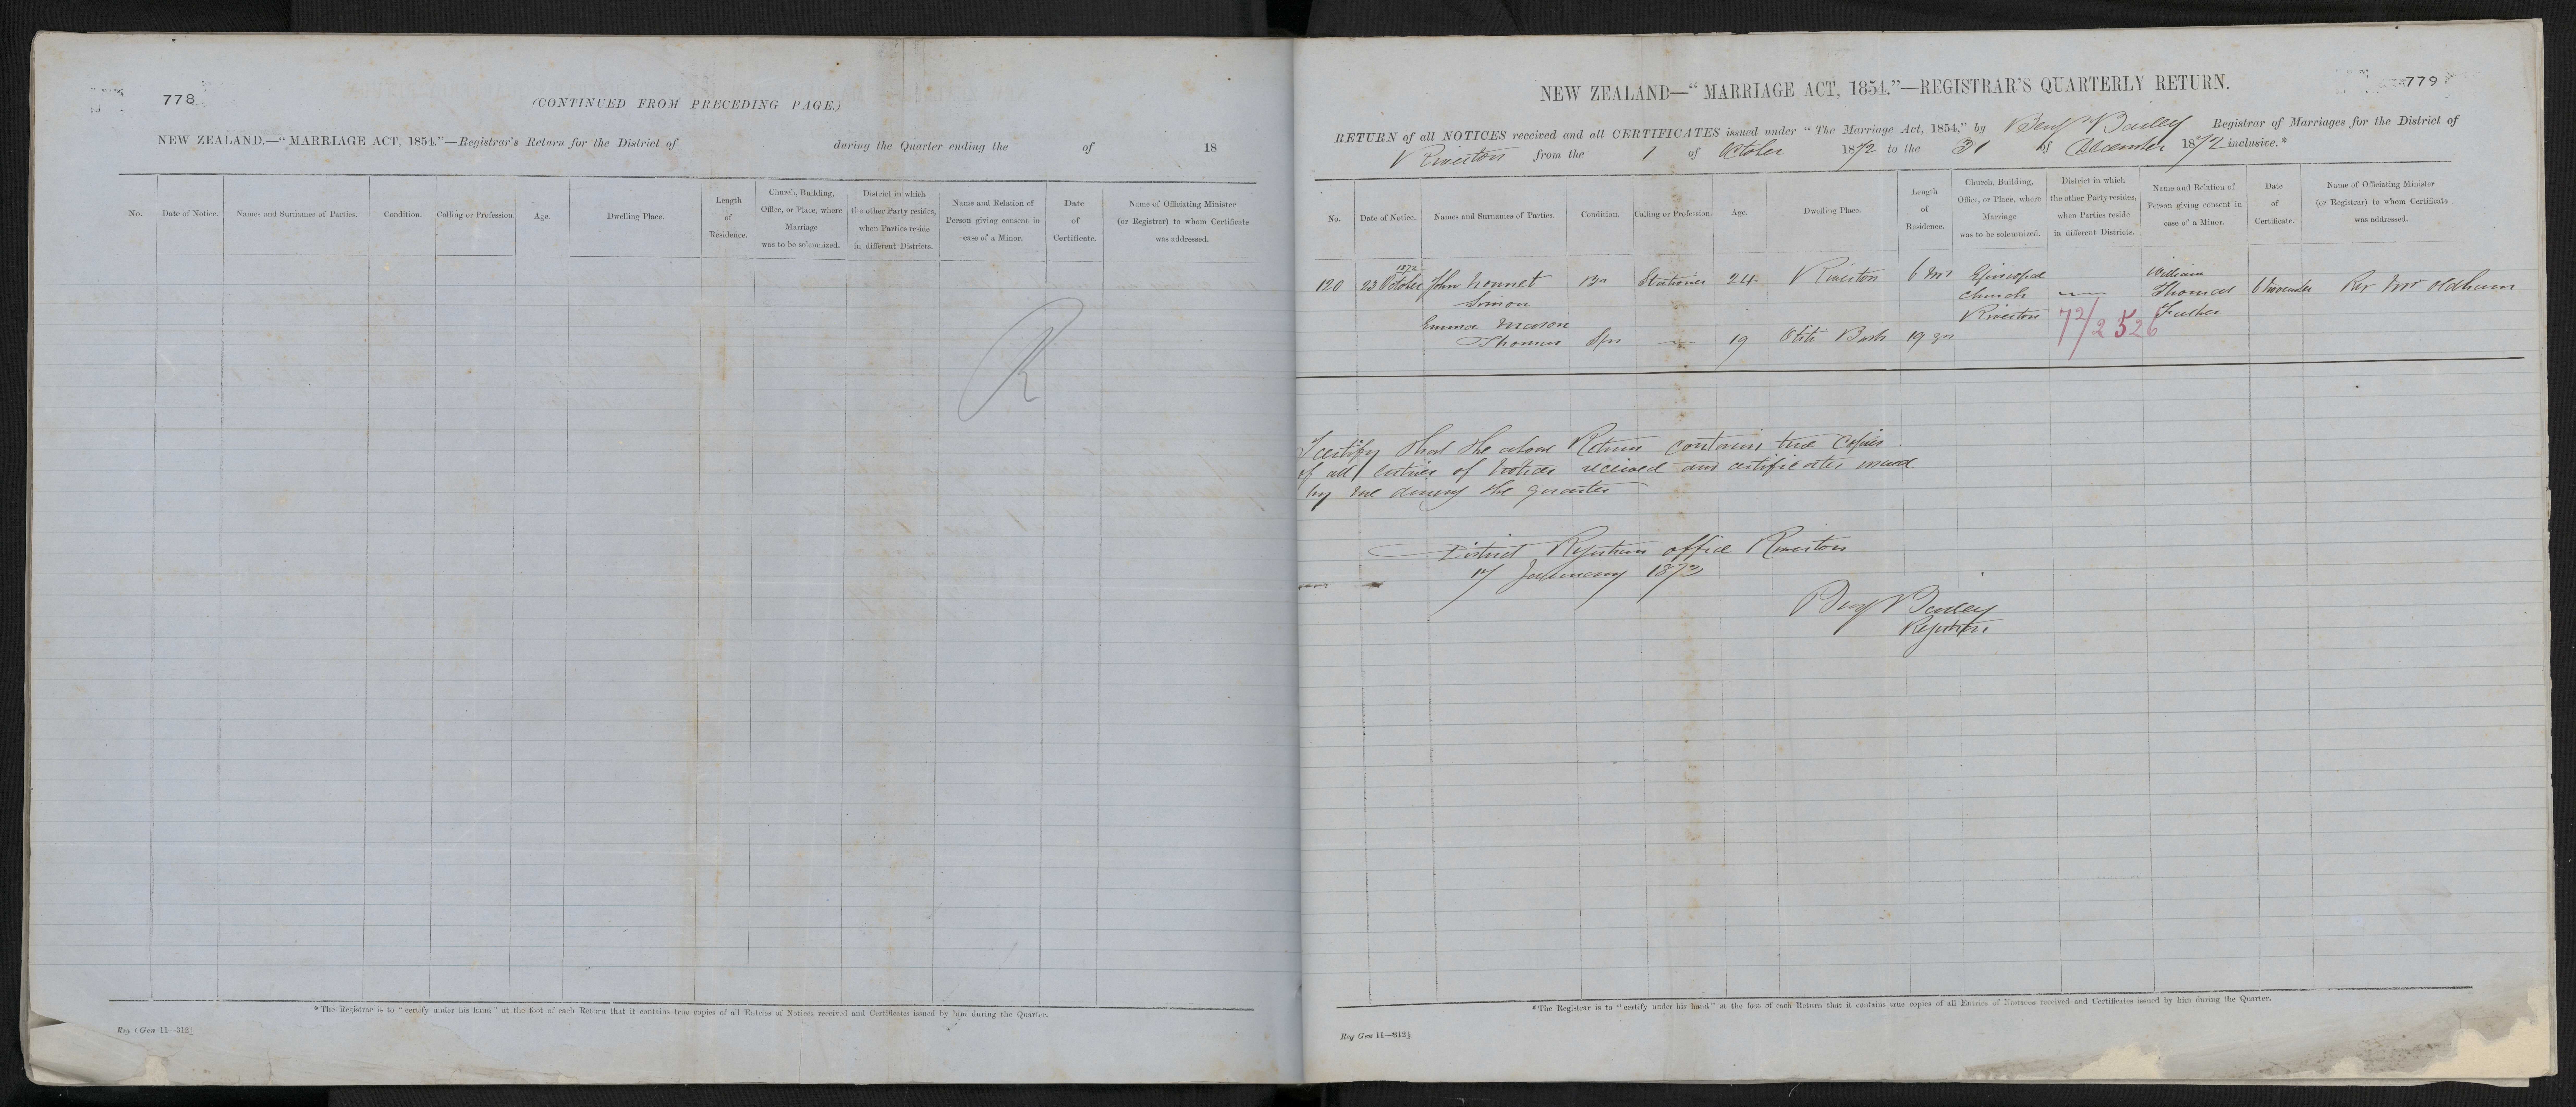 778
(CONTINUED FROM PRECEDING PAGE.)
NEW ZEALAND.—"MARRIAGE ACT, 1854."—Registrar's Return for the District of during the Quarter ending the of 18
No. Date of Notice. Names and Surnames of Parties. Condition. Calling or Profession. Age. Dwelling Place. Length of Residence. Church, Building, Office, or Place, where Marriage was to be solemnized. District in which the other Party resides, when Parties reside in different Districts. Name and Relation of Person giving consent in case of a Minor. Date of Certificate. Name of Officiating Minister (or Registrar) to whom Certificate was addressed.
R
*The Registrar is to "certify under his hand" at the foot of each Return that it contains true copies of all Entries of Notices received and Certificates issued by him during the Quarter.
Reg Gen 11—312]
779
NEW ZEALAND—"MARRIAGE ACT, 1854."—REGISTRAR'S QUARTERLY RETURN.
RETURN of all NOTICES received and all CERTIFICATES issued under "The Marriage Act, 1854," by Benj Bailey Registrar of Marriages for the District of
Riverton from the 1 of October 1872 to the 31 of December 1872 inclusive.*
No. Date of Notice. Names and Surnames of Parties. Condition. Calling or Profession. Age. Dwelling Place. Length of Residence. Church, Building, Office, or Place, where Marriage was to be solemnized. District in which the other Party resides, when Parties reside in different Districts. Name and Relation of Person giving consent in case of a Minor. Date of Certificate. Name of Officiating Minister (or Registrar) to whom Certificate was addressed.
1872
120 23 October John Nonnet Simon Br Stationer 24 Riverton 6 Ms Episcopal Church Riverton — William Thomas Father 6 November Rev Mr Oldham
Emma Mason Thomas Spr — 19 Otiti Bush 19 yrs
72/2526
I certify that the above Return contains true Copies
of all entries of Notices received and certificates issued
by me during the quarter
District Registrars office Riverton
17 January 1873
Benj Bailey
Registrar
*The Registrar is to "certify under his hand" at the foot of each Return that it contains true copies of all Entries of Notices received and Certificates issued by him during the Quarter.
Reg Gen 11—312]